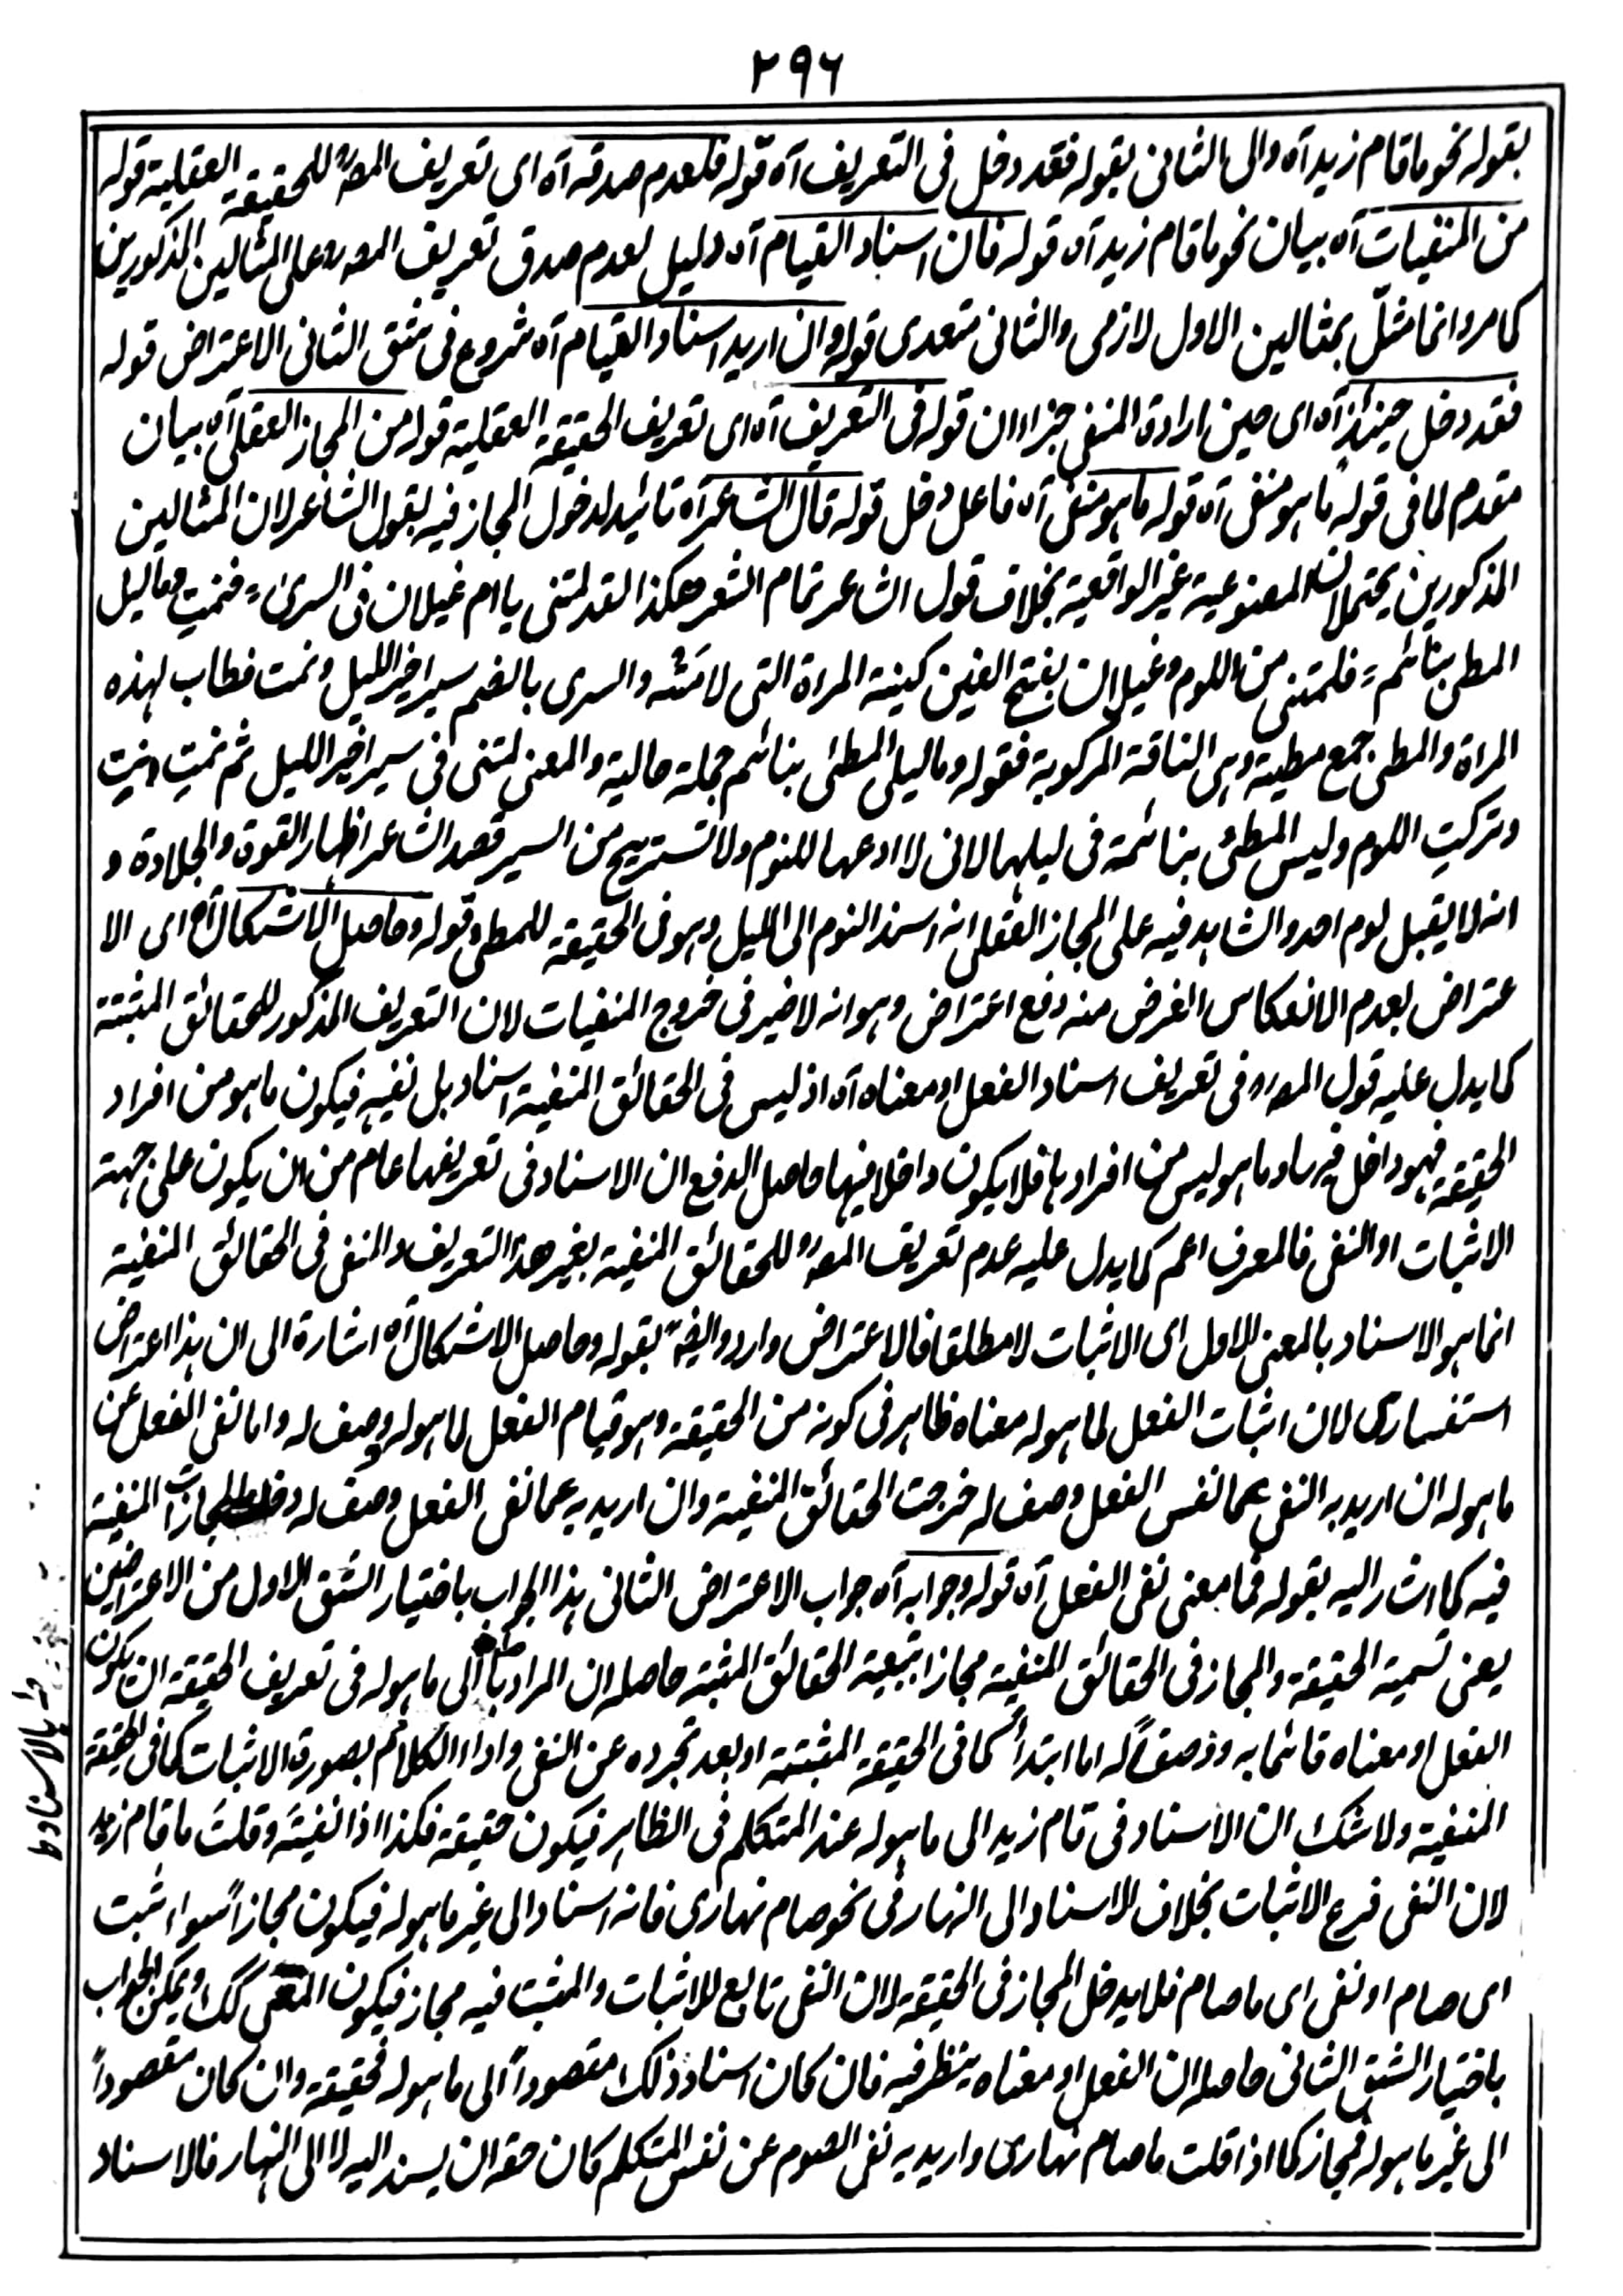 ٢٩٦
بقوله نحو ما قام زيد آه والى الثانى بقوله فقد دخل فى التعريف آه قوله فلعدم صدقه آه اى تعريف المصرح للحقيقة العقلية قوله
من المنفيات آه بيان نحو ما قام زيد آه قوله فان اسناد القيام آه دليل لعدم صدق تعريف المصرح على المثالين المذكورين
كما مر وانما مثل بمثالين الاول لازمى والثانى متعدى قوله وان اريد اسناد القيام آه شروع فى شق الثانى الاعتراض قوله
فقد دخل حينئذ آه اى حين ارادة المنفى جزاء ان قوله فى التعريف آه اى تعريف الحقيقة العقلية قوله من المجاز العقلى آه بيان
مقدم لما فى قوله ما هو منفى آه قوله ما هو منفى آه فاعل دخل قوله قال الشاعر آه تائيد لدخول المجاز فيه بقول الشاعر لان المثالين
المذكورين يحتملان المصنوعية غير الواقعية بخلاف قول الشاعر تمام الشعر هكذا لقد لمتنى يا ام غيلان فى السرى ؛ فنمت وما ليل
المطى بنائم ؛ فلمتنى من اللوم وغيلان بفتح الغين كينة المراة التى لامته والسرى بالضم سير اخير الليل ونمت خطاب لهذه
المراة والمطى جمع مطية وهى الناقة المركوبة فقوله وما ليل المطى بنائم جملة حالية والمعنى لمتنى فى سير اخير الليل ثم نمت انت
وتركت اللوم وليس المطى بنائمة فى ليلها لانى لا ادعها للنوم ولا تستريح من السير قصد الشاعر اظهار القوة والجلادة و
انه لا يقبل لوم احد والشاهد فيه على المجاز العقلى انه اسند النوم الى الليل وهو فى الحقيقة للمطى قوله وحاصل الاشكال آه اى الا
عتراض بعدم الانعكاس الغرض منه دفع اعتراض وهو انه لا ضير فى خروج المنفيات لان التعريف المذكور للحقائق المثبتة
كما يدل عليه قول المصرح فى تعريف اسناد الفعل او معناه آه اذ ليس فى الحقائق المنفية اسناد بل نفيه فيكون ما هو من افراد
الحقيقة فهو داخل فيها وما هو ليس من افرادها فلا يكون داخلا فيها حاصل الدفع ان الاسناد فى تعريفها عام من ان يكون على جهة
الاثبات او النفى فالمعرف اعم كما يدل عليه عدم تعريف المصرح للحقائق المنفية بغير هذا التعريف والنفى فى الحقائق المنفية
انما هو الاسناد بالمعنى الاول اى الاثبات لا مطلقا فالاعتراض وارد وايضا بقوله وحاصل الاشكال آه اشارة الى ان هذا اعتراض
استفسارى لان اثبات الفعل لما هو له معناه ظاهر فى كونه من الحقيقة وهو قيام الفعل لما هو له وصف له واما نفى الفعل عن
ما هو له ان اريد به النفى عما نفس الفعل وصف له خرجت الحقائق المنفية وان اريد به عما نفى الفعل وصف له دخلت المجازات المنفية
فيه كما اشار اليه بقوله فما معنى نفى الفعل آه قوله وجوابه آه جواب الاعتراض الثانى هذا الجواب باختيار الشق الاول من الاعتراضين
يعنى تسمية الحقيقة والمجاز فى الحقائق المنفية مجازا بتبعية الحقائق المثبتة حاصله ان المراد الى ما هو له فى تعريف الحقيقة ان يكون
الفعل او معناه قائما به ووصفا له اما ابتداء كما فى الحقيقة المثبتة او بعد تجرده عن النفى واداء الكلام بصورة الاثبات كما فى الحقيقة
المنفية ولا شك ان الاسناد فى قام زيد الى ما هو له عند المتكلم فى الظاهر فيكون حقيقة فكذا اذا نفيته وقلت ما قام زيد
لان النفى فرع الاثبات بخلاف الاسناد الى النهار فى نحو صام نهارى فانه اسناد الى غير ما هو له فيكون مجازا سواء اثبت
اى صام او نفى اى ما صام فلا يدخل المجاز فى الحقيقة لان النفى تابع للاثبات والمثبت فيه مجاز فيكون المنفى كك ويمكن الجواب
باختيار الشق الثانى حاصله ان الفعل او معناه ينظر فيه فان كان اسناد ذلك مقصودا الى ما هو له فحقيقة وان كان مقصودا
الى غير ما هو له فمجاز كما اذا قلت ما صام نهارى واريد به نفى الصوم عن نفس المتكلم كان حقه ان يسند اليه لا الى النهار فالاسناد
بالاسناد ط